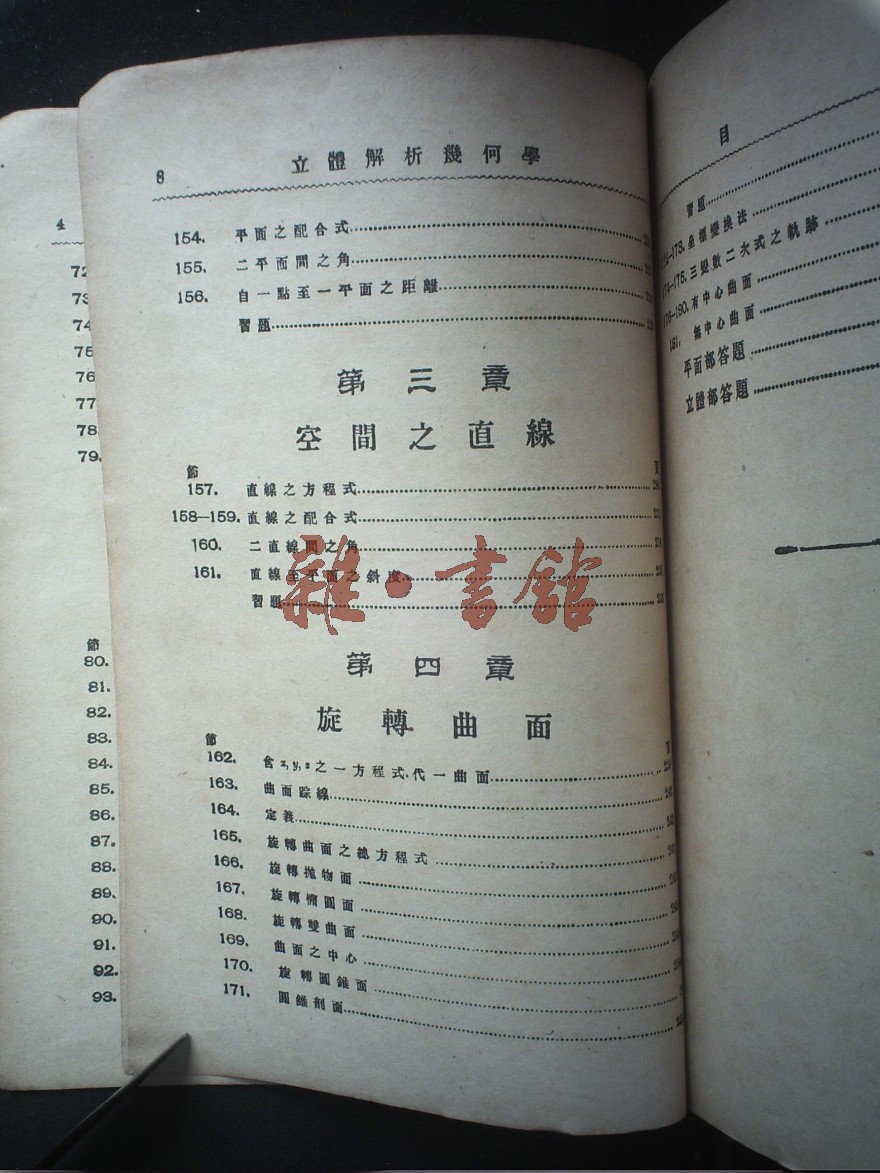 4
72
73
74
75
76
77
78
79.
節
80.
81.
82.
83.
84.
85.
86.
87.
88.
89.
90.
91.
92.
93.
8 立體解析幾何學
154. 平面之配合式
155. 二平面間之角
156. 自一點至一平面之距離
習題
第三章
空間之直線
節 頁
157. 直線之方程式
158—159. 直線之配合式
160. 二直線間之角
161. 直線至平面之斜度
習題
雜·書館
第四章
旋轉曲面
節 頁
162. 含x,y,z之一方程式代一曲面
163. 曲面踪線
164. 定義
165. 旋轉曲面之總方程式
166. 旋轉抛物面
167. 旋轉橢圓面
168. 旋轉雙曲面
169. 曲面之中心
170. 旋轉圓錐面
171. 圓錐剖面
目
習題
—173. 坐標變換法
—175. 三變數二次式之軌跡
—190. 有中心曲面
181. 無中心曲面
平面部答題
立體部答題